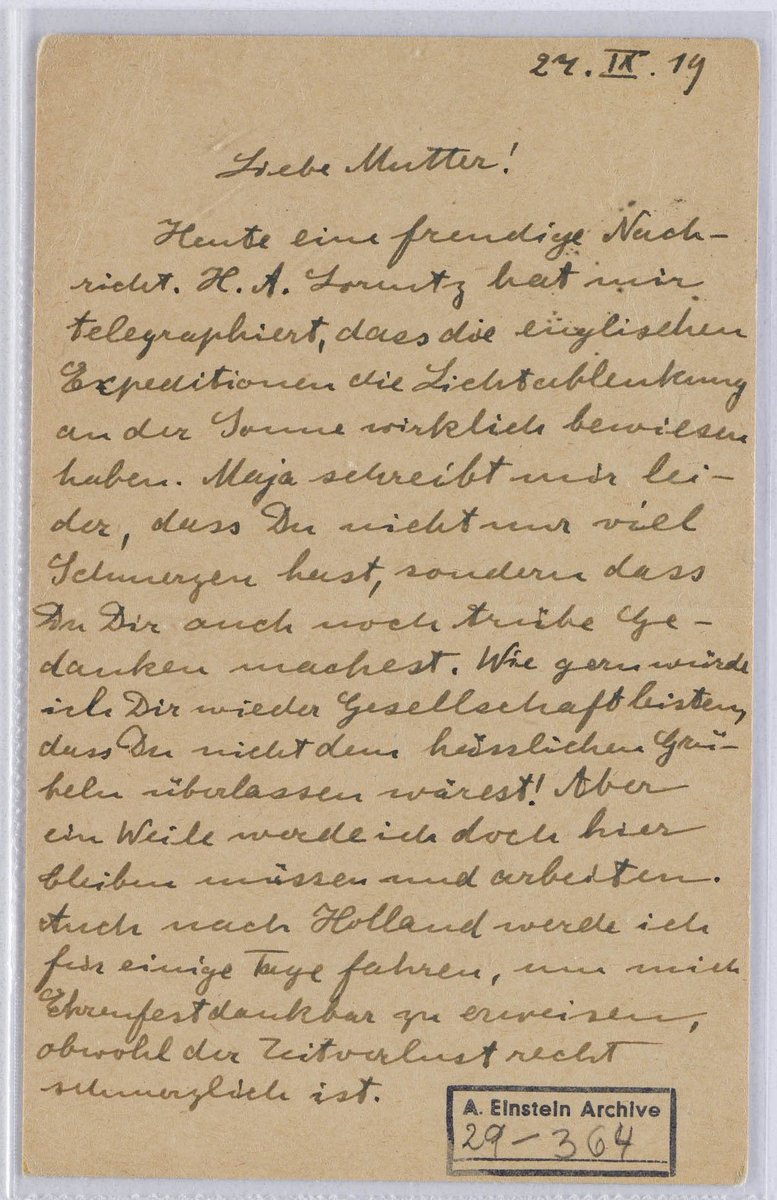 27. IX. 19
Liebe Mutter!
Heute eine freudige Nach-
richt. H. A. Lorentz hat mir
telegraphiert, dass die englischen
Expeditionen die Lichtablenkung
an der Sonne wirklich bewiesen
haben. Maja schreibt mir lei-
der, dass Du nicht nur viel
Schmerzen hast, sondern dass
Du Dir auch noch trübe Ge-
danken machest. Wie gern würde
ich Dir wieder Gesellschaft leisten,
dass Du nicht dem hässlichen Grü-
beln überlassen wärest! Aber
ein Weile werde ich doch hier
bleiben müssen und arbeiten.
Auch nach Holland werde ich
für einige Tage fahren, um mich
Ehrenfest dankbar zu erweisen,
obwohl der Zeitverlust recht
schmerzlich ist.
A. Einstein Archive
29-364